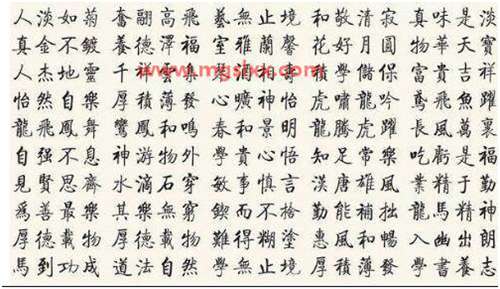 人淡如菊 奮翮高飛 藝無止境 和敬清寂 真味是淡
真金不鍍 養德澤福 室雅蘭馨 花好月圓 物華天寶
www.mgslxx.com
人杰地靈 千 學儲保 富貴吉祥
怡然自樂 厚積薄發 心曠神怡 虎嘯龍吟 鳶飛魚躍
龍飛鳳舞 鸞鳳和鳴 春和景明 龍騰虎躍 長風萬裏
自强不息 神游物外 學貴心悟 知足常樂 吃虧是福
見賢思齊 水滴石穿 敏事慎言 漢唐雄風 業精于勤
爲善最樂 其樂無窮 鍥而不捨 勤能補拙 龍馬精神
厚德載物 厚德載物 難得糊塗 惠風和暢 入幽出朗
馬到功成 道法自然 學無止境 厚積薄發 學書養志